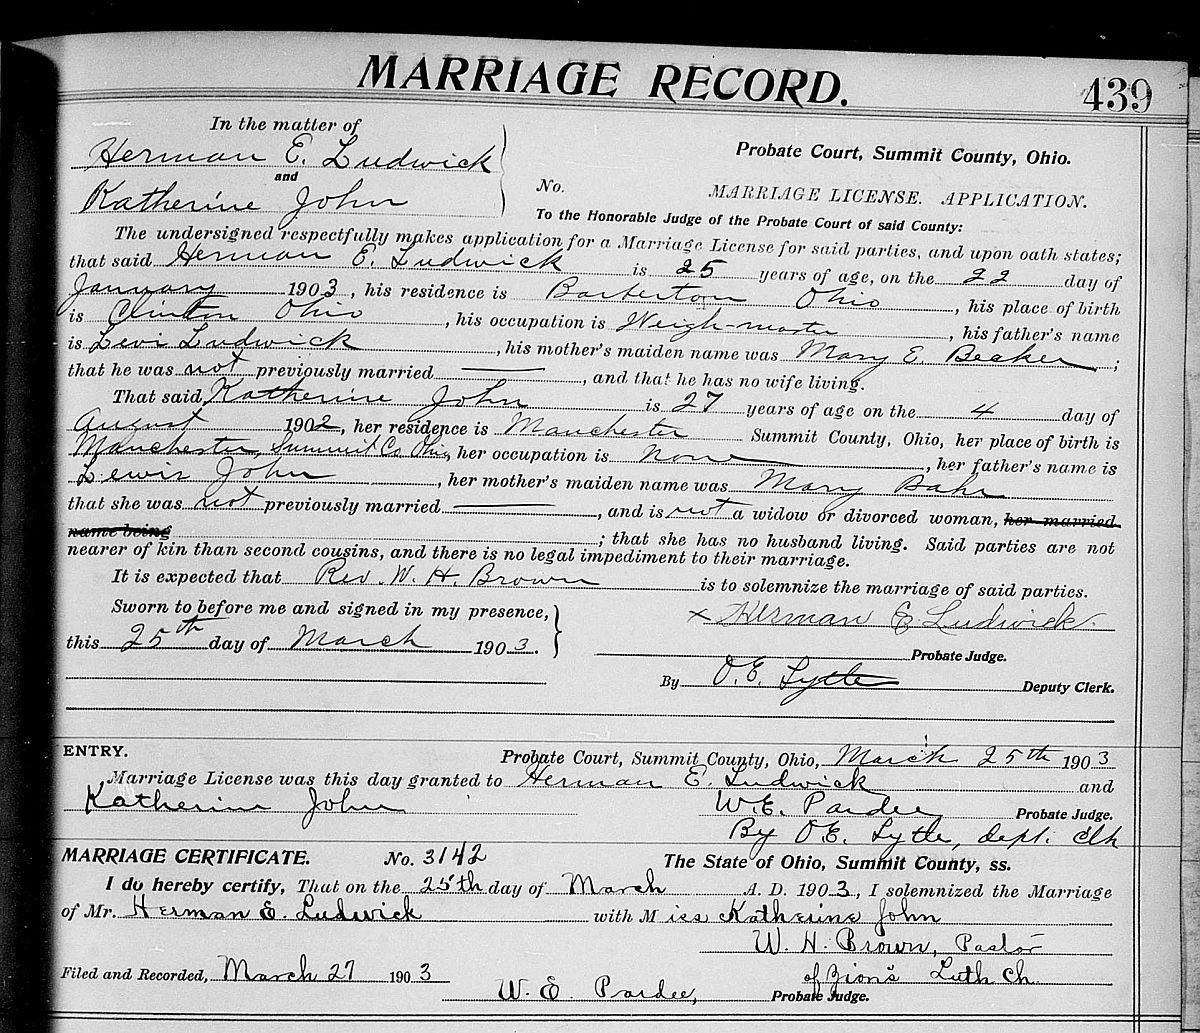 MARRIAGE RECORD.
439
In the matter of
Herman E. Ludwick
and
Katherine John
Probate Court, Summit County, Ohio.
No.
MARRIAGE LICENSE. APPLICATION.
To the Honorable Judge of the Probate Court of said County:
The undersigned respectfully makes application for a Marriage License for said parties, and upon oath states;
that said Herman E. Ludwick is 25 years of age, on the 22 day of
January 1903, his residence is Barberton Ohio, his place of birth
is Clinton Ohio, his occupation is Weigh-master, his father's name
is Levi Ludwick, his mother's maiden name was Mary E. Beaker;
that he was not previously married, and that he has no wife living.
That said Katherine John is 27 years of age on the 4 day of
August 1902, her residence is Manchester Summit County, Ohio, her place of birth is
Manchester, Summit Co Ohio, her occupation is none, her father's name is
Lewis John, her mother's maiden name was Mary Bahr
that she was not previously married, and is not a widow or divorced woman, her married
name being; that she has no husband living. Said parties are not
nearer of kin than second cousins, and there is no legal impediment to their marriage.
It is expected that Rev. W. H. Brown is to solemnize the marriage of said parties.
Sworn to before me and signed in my presence,
this 25th day of March 1903.
x Herman E Ludwick.
Probate Judge.
By O.E. Lytle Deputy Clerk.
ENTRY.
Probate Court, Summit County, Ohio, March 25th 1903
Marriage License was this day granted to Herman E. Ludwick and
Katherine John
W.E. Pardee Probate Judge.
By O.E. Lytle, dept. Clk
MARRIAGE CERTIFICATE. No. 3142 The State of Ohio, Summit County, ss.
I do hereby certify, That on the 25th day of March A. D. 1903, I solemnized the Marriage
of Mr. Herman E. Ludwick with Miss Katherine John
W. H. Brown, Pastor
of Zion's Luth Ch.
Filed and Recorded, March 27 1903
W. E. Pardee, Probate Judge.